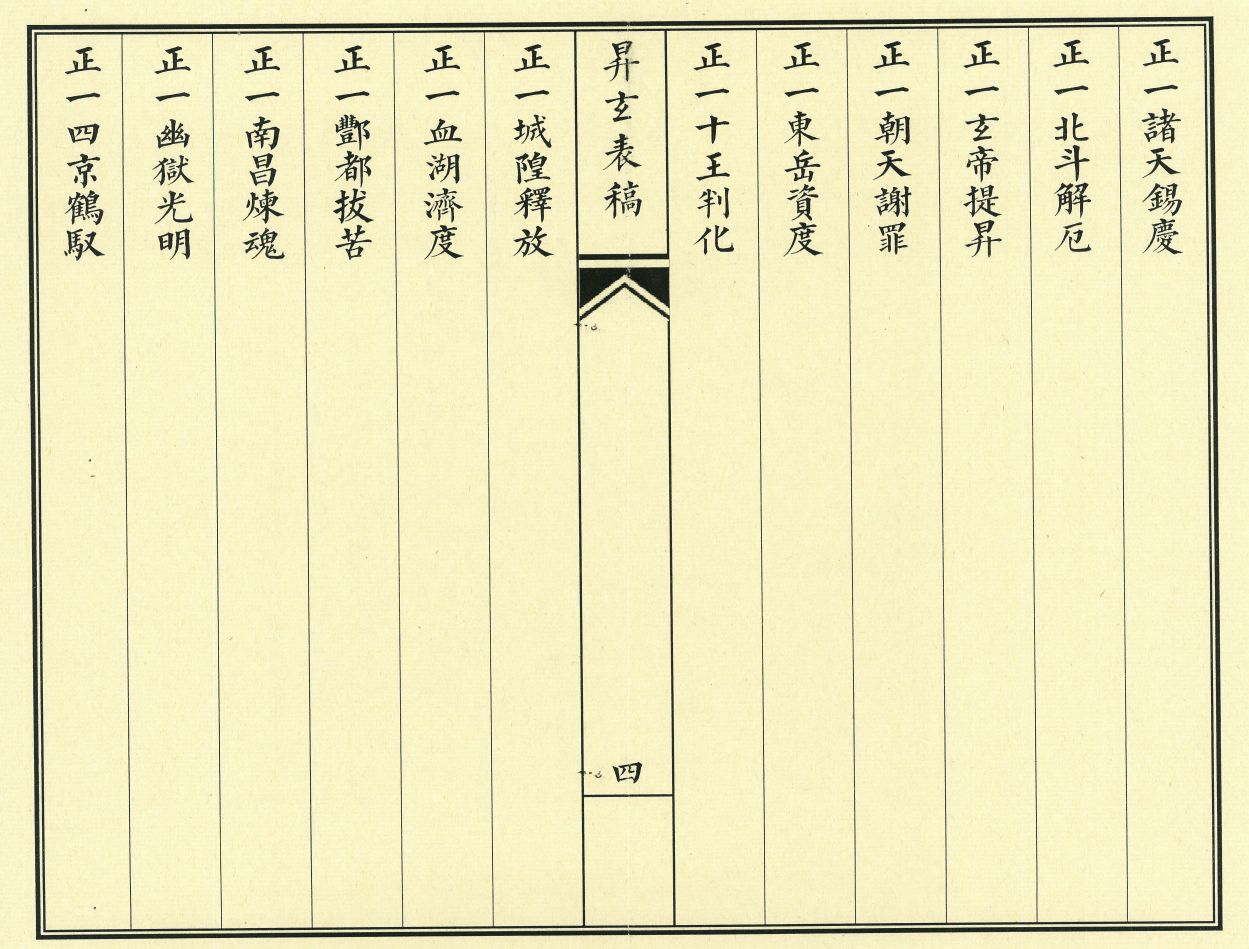 正一諸天錫慶
正一北斗解厄
正一玄帝提昇
正一朝天謝罪
正一東岳資度
正一十王判化
昇玄表稿
四
正一城隍釋放
正一血湖濟度
正一酆都拔苦
正一南昌煉魂
正一幽獄光明
正一四京鶴馭